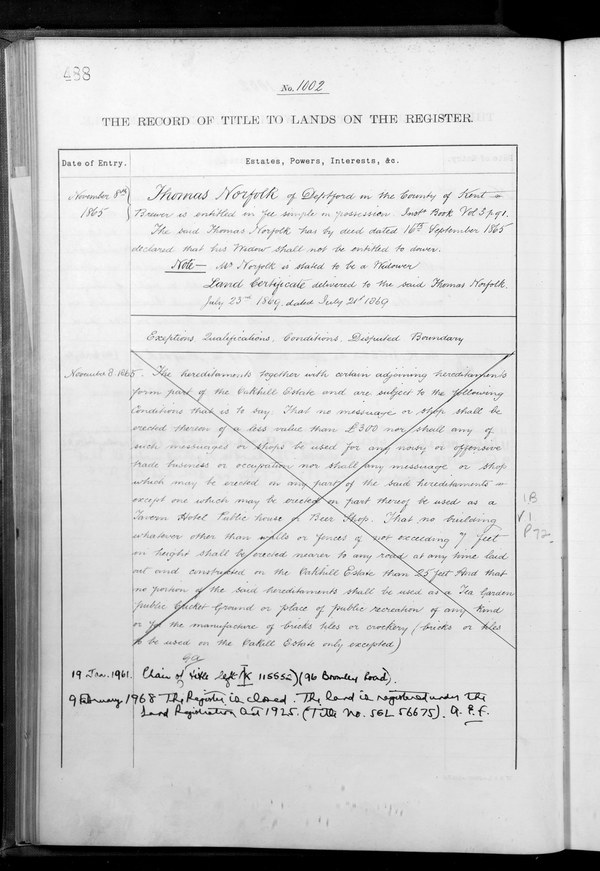 488
No. 1002
THE RECORD OF TITLE TO LANDS ON THE REGISTER.
Date of Entry.
Estates, Powers, Interests, &c.
November 8th 1865
Thomas Norfolk of Deptford in the County of Kent
Brewer is entitled in fee simple in possession. Inst. Book Vol 3. p 91.
The said Thomas Norfolk has by deed dated 16th September 1865
declared that his Widow shall not be entitled to dower.
Note — Mr Norfolk is stated to be a Widower
Land Certificate delivered to the said Thomas Norfolk.
July 23rd 1869, dated July 21st 1869
Exceptions Qualifications. Conditions. Disputed Boundary
November 8. 1865. The hereditaments together with certain adjoining hereditaments
form part of the Oakhill Estate and are subject to the following
Conditions that is to say. That no messuage or shop shall be
erected thereon of a less value than £300 nor shall any of
such messuages or shops be used for any noisy or offensive
trade business or occupation nor shall any messuage or shop
which may be erected on any part of the said hereditaments
except one which may be erected on part thereof be used as a
Tavern Hotel Public house or Beer Shop. That no building
whatever other than walls or fences of not exceeding 7 feet
in height shall be erected nearer to any road at any time laid
out and constructed on the Oakhill Estate than 25 feet And that
no portion of the said hereditaments shall be used as a Tea Garden
public Cricket Ground or place of public recreation of any kind
or for the manufacture of bricks tiles or crockery (bricks or tiles
to be used on the Oakhill Estate only excepted)
1B
V 1
P 72
19 Jan. 1961. Chain of title (96 Bromley Road).
9 February 1968 The Register is closed. The land is registered under the
Land Registration Act 1925. (Title No. SGL 56675). A. P. F.